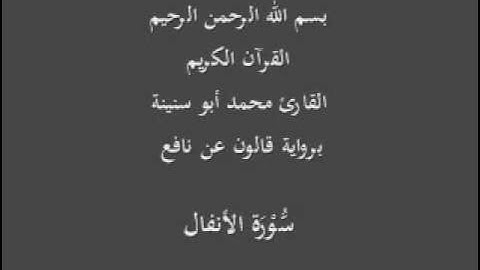 بسم الله الرحمن الرحيم
القرآن الكريم
القارئ محمد أبو سنينة
برواية قالون عن نافع
سُّوْرَة الأَنفال